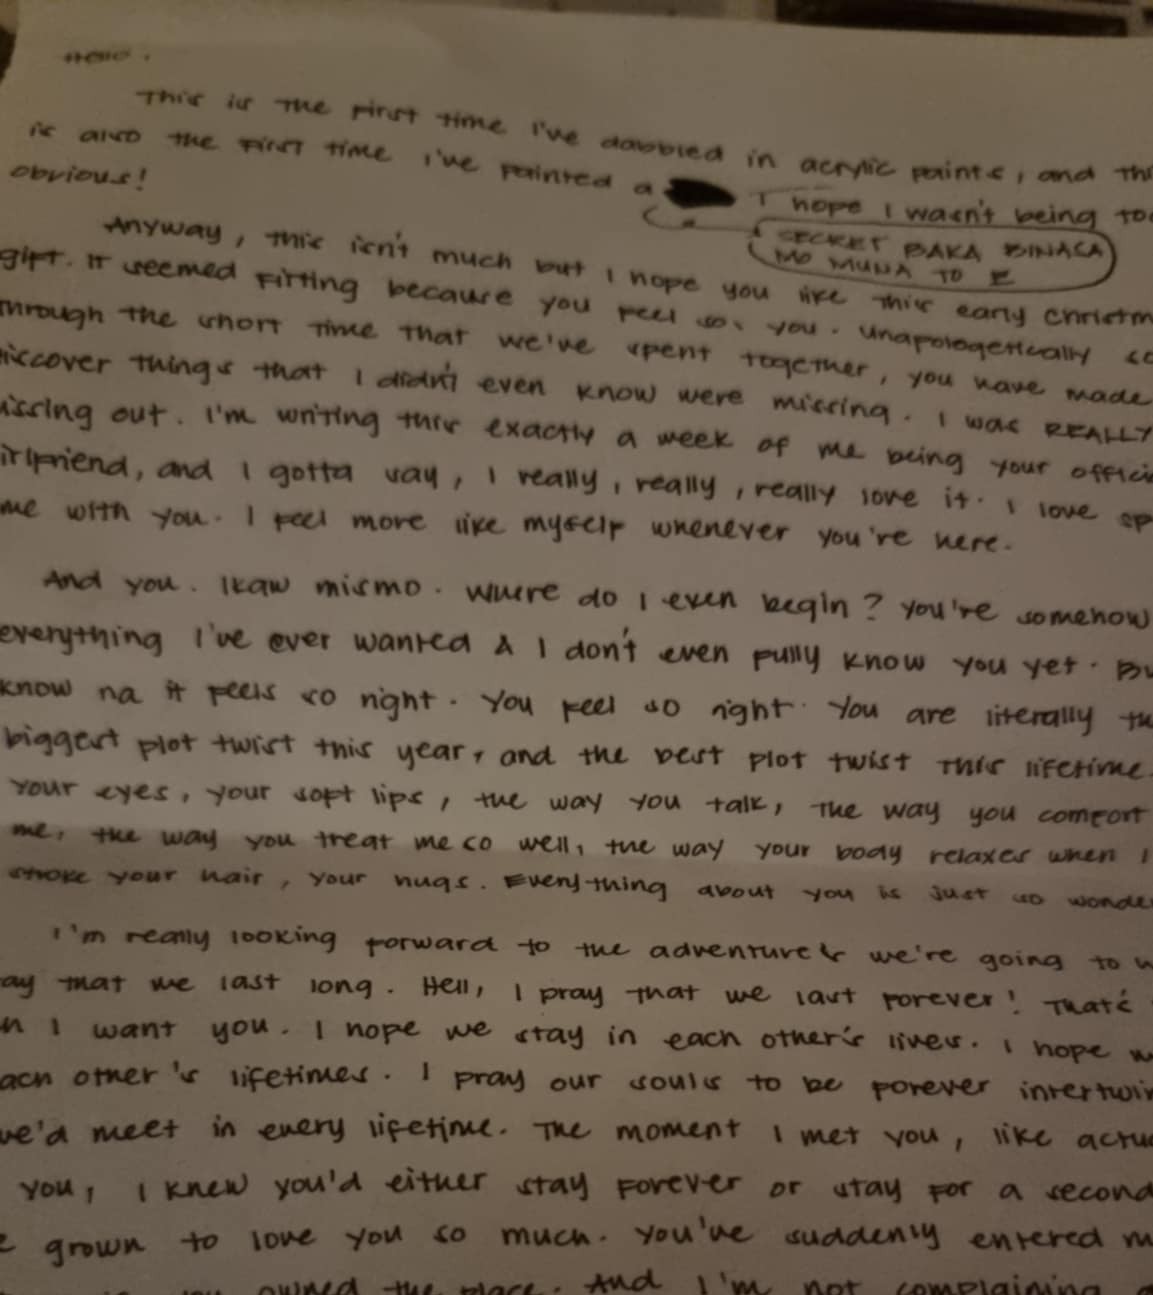 Hello.
This is the first time I've dabbled in acrylic paints, and th
is also the first time I've painted a I hope I wasn't being too
obvious!
SECRET BAKA BINASA
MO MUNA TO E
Anyway, this isn't much but I hope you like this early christm
gift. It seemed fitting because you feel so, you. Unapologetically so
through the short time that we've spent together, you have made
iscover things that I didn't even know were missing. I was REALLY
issing out. I'm writing this exactly a week of me being your offici
irlfriend, and I gotta say, I really, really, really love it. I love sp
me with you. I feel more like myself whenever you're here.
And you. Ikaw mismo. Where do I even begin? You're somehow
everything I've ever wanted & I don't even fully know you yet. Bu
know na it feels so right. You feel so right. You are literally th
biggest plot twist this year, and the best plot twist this lifetime.
Your eyes, your soft lips, the way you talk, the way you comfort
me, the way you treat me so well, the way your body relaxes when I
stroke your hair, your hugs. Everything about you is just so wonde
I'm really looking forward to the adventures we're going to h
ay that we last long. Hell, I pray that we last forever! That's
n I want you. I hope we stay in each other's lives. I hope w
ach other's lifetimes. I pray our souls to be forever intertwin
we'd meet in every lifetime. The moment I met you, like actua
you, I knew you'd either stay forever or stay for a second
e grown to love you so much. You've suddenly entered m
owned the place. And I'm not complaining